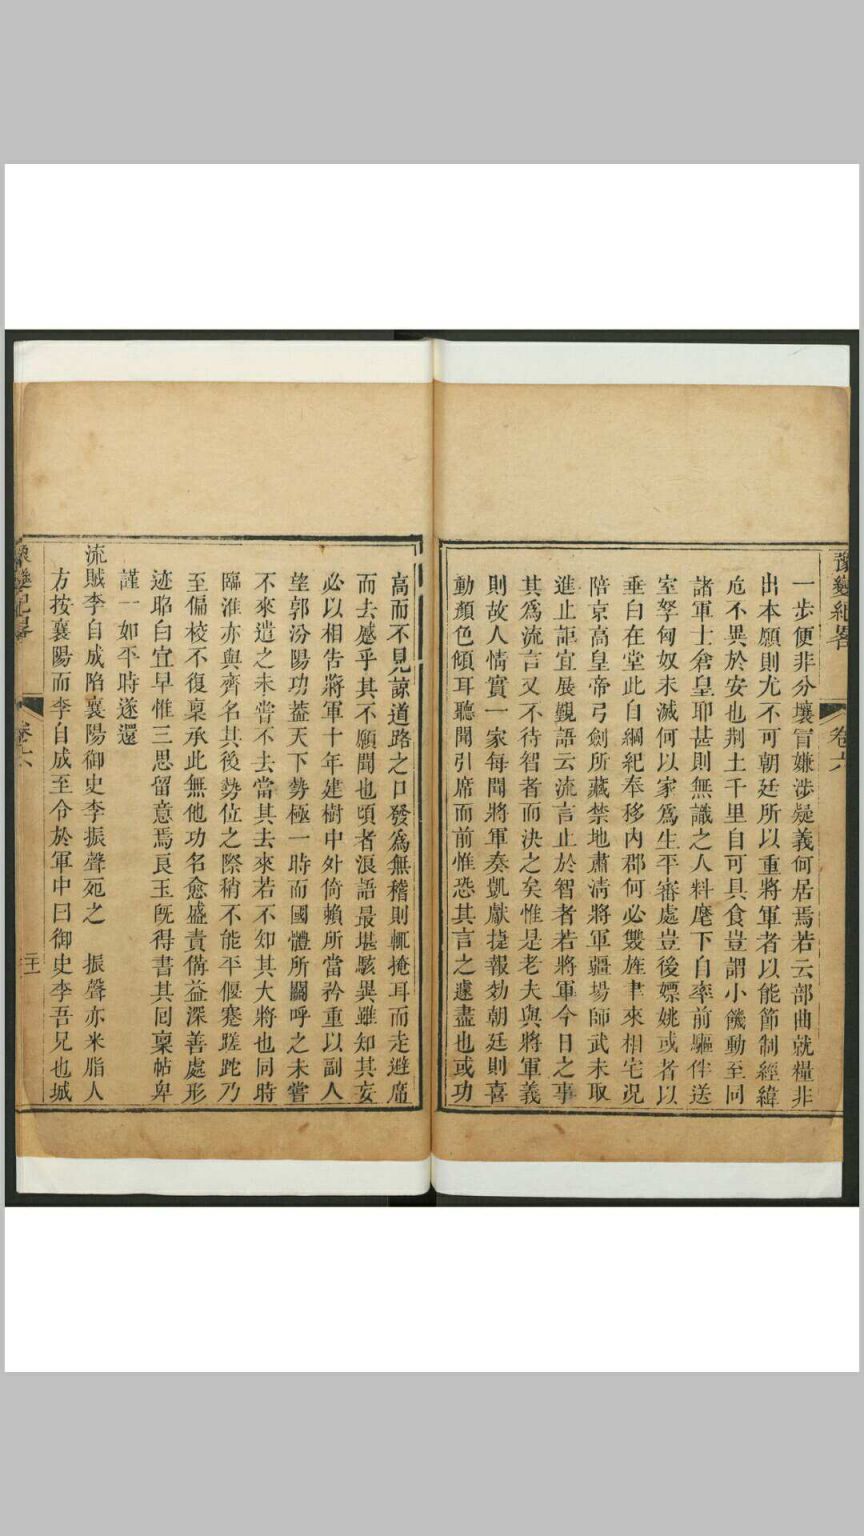 豫變紀畧
卷六
一步便非分壤冒嫌涉疑義何居焉若云部曲就糧非
出本願則尤不可朝廷所以重將軍者以能節制經緯
危不異於安也荆土千里自可具食豈謂小饑動至同
諸軍士倉皇耶甚則無識之人料麾下自率前驅伴送
室孥匈奴未滅何以家爲生平審處豈後嫖姚或者以
垂白在堂此自綱紀奉移內郡何必雙旌聿來相宅况
陪京高皇帝弓劍所藏禁地肅清將軍疆埸師武未取
進止詎宜展覲語云流言止於智者若將軍今日之事
其爲流言又不待智者而決之矣惟是老夫與將軍義
則故人情實一家每聞將軍奏凱獻捷報効朝廷則喜
動顏色傾耳聽聞引席而前惟恐其言之遽盡也或功
高而不見諒道路之口發爲無稽則輒掩耳而走避席
而去蹙乎其不願聞也頃者浪語最堪駭異雖知其妄
必以相告將軍十年建樹中外倚賴所當矜重以副人
望郭汾陽功蓋天下勢極一時而國體所關呼之未嘗
不來遣之未嘗不去當其去來若不知其大將也同時
臨淮亦與齊名其後勢位之際稍不能平偃蹇蹉跎乃
至偏校不復稟承此無他功名愈盛責備益深善處形
迹昭白宜早惟三思留意焉良玉旣得書其囘稟帖卑
謹一如平時遂還
流賊李自成陷襄陽御史李振聲宛之　振聲亦米脂人
方按襄陽而李自成至令於軍中曰御史李吾兄也城
豫變紀畧
卷六
二十一